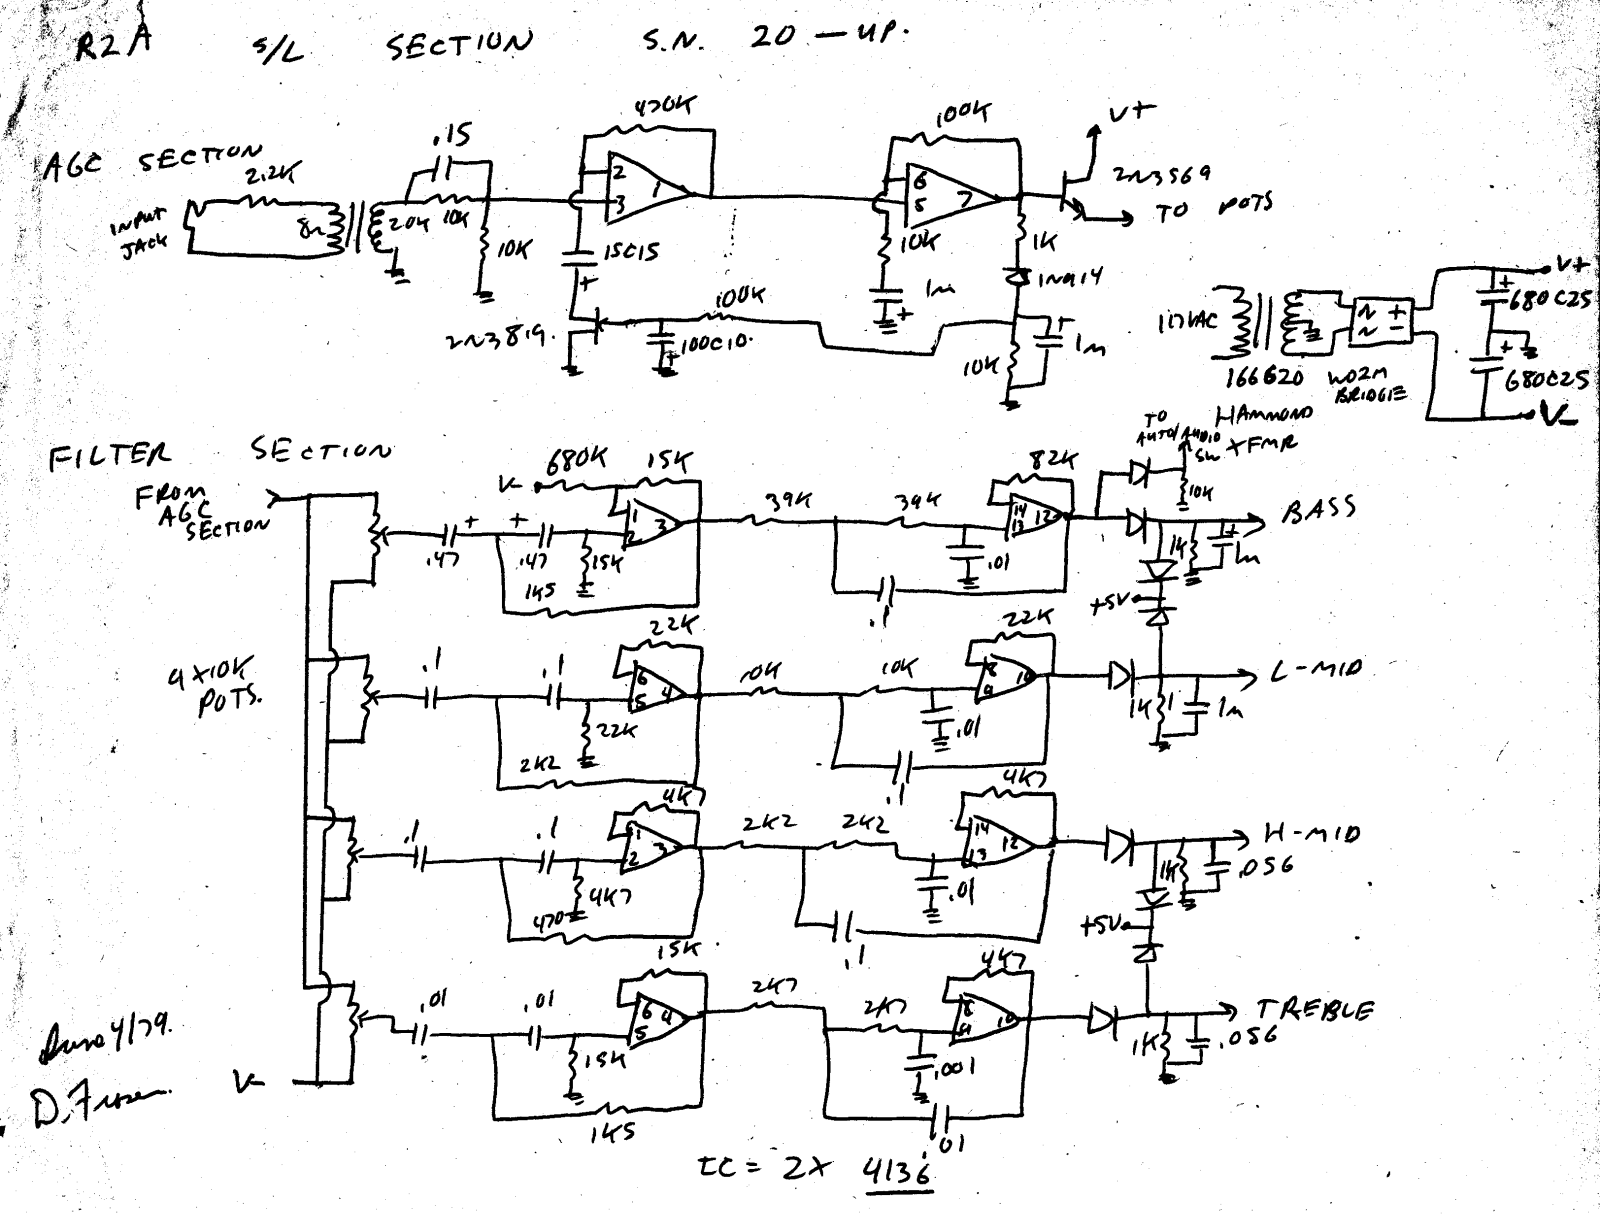 R2A S/L SECTION S.N. 20 — UP.
AGC SECTION
2.2K
INPUT
JACK
8Ω
20K
.15
10K
10K
470K
2
3
1
15C15
+
2N3819.
100K
100C10.
+
100K
6
5
7
10K
1m
+
1K
1N914
+
1m
10K
V+
2N3569
TO POTS
117VAC
166G20
HAMMOND
XFMR
W02M
BRIDGE
+
−
V+
+
680C25
+
680C25
V-
FILTER SECTION
FROM
AGC
SECTION
V-
680K
15K
+
.47
+
.47
1
2
3
15K
1K5
39K
39K
82K
14
13
12
.01
.1
TO
AUTO/AUDIO
SW
10K
BASS
1K
+
1m
+5V
4 X 10K
POTS.
.1
.1
22K
6
5
4
22K
2K2
10K
10K
22K
8
9
10
.01
.1
L-MID
1K
1m
.1
.1
4K7
1
2
3
4K7
470
2K2
2K2
4K7
14
13
12
.01
.1
H-MID
1K
.056
+5V
.01
.01
15K
6
5
4
15K
1K5
2K7
2K7
4K7
8
9
10
.001
.01
TREBLE
1K
.056
V-
June 4/79.
D. Fraser.
IC = 2X 4136